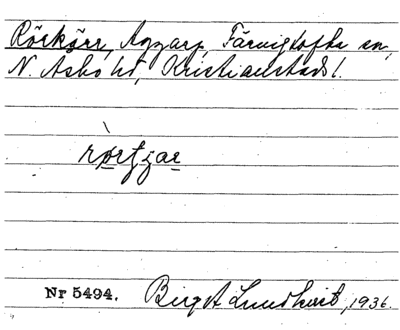 Rörkärr, Aggarp, Färingtofta sn,
N. Åsbo hd, Kristianstads l.
Nr 5494. Birgit Lundkvist, 1936.